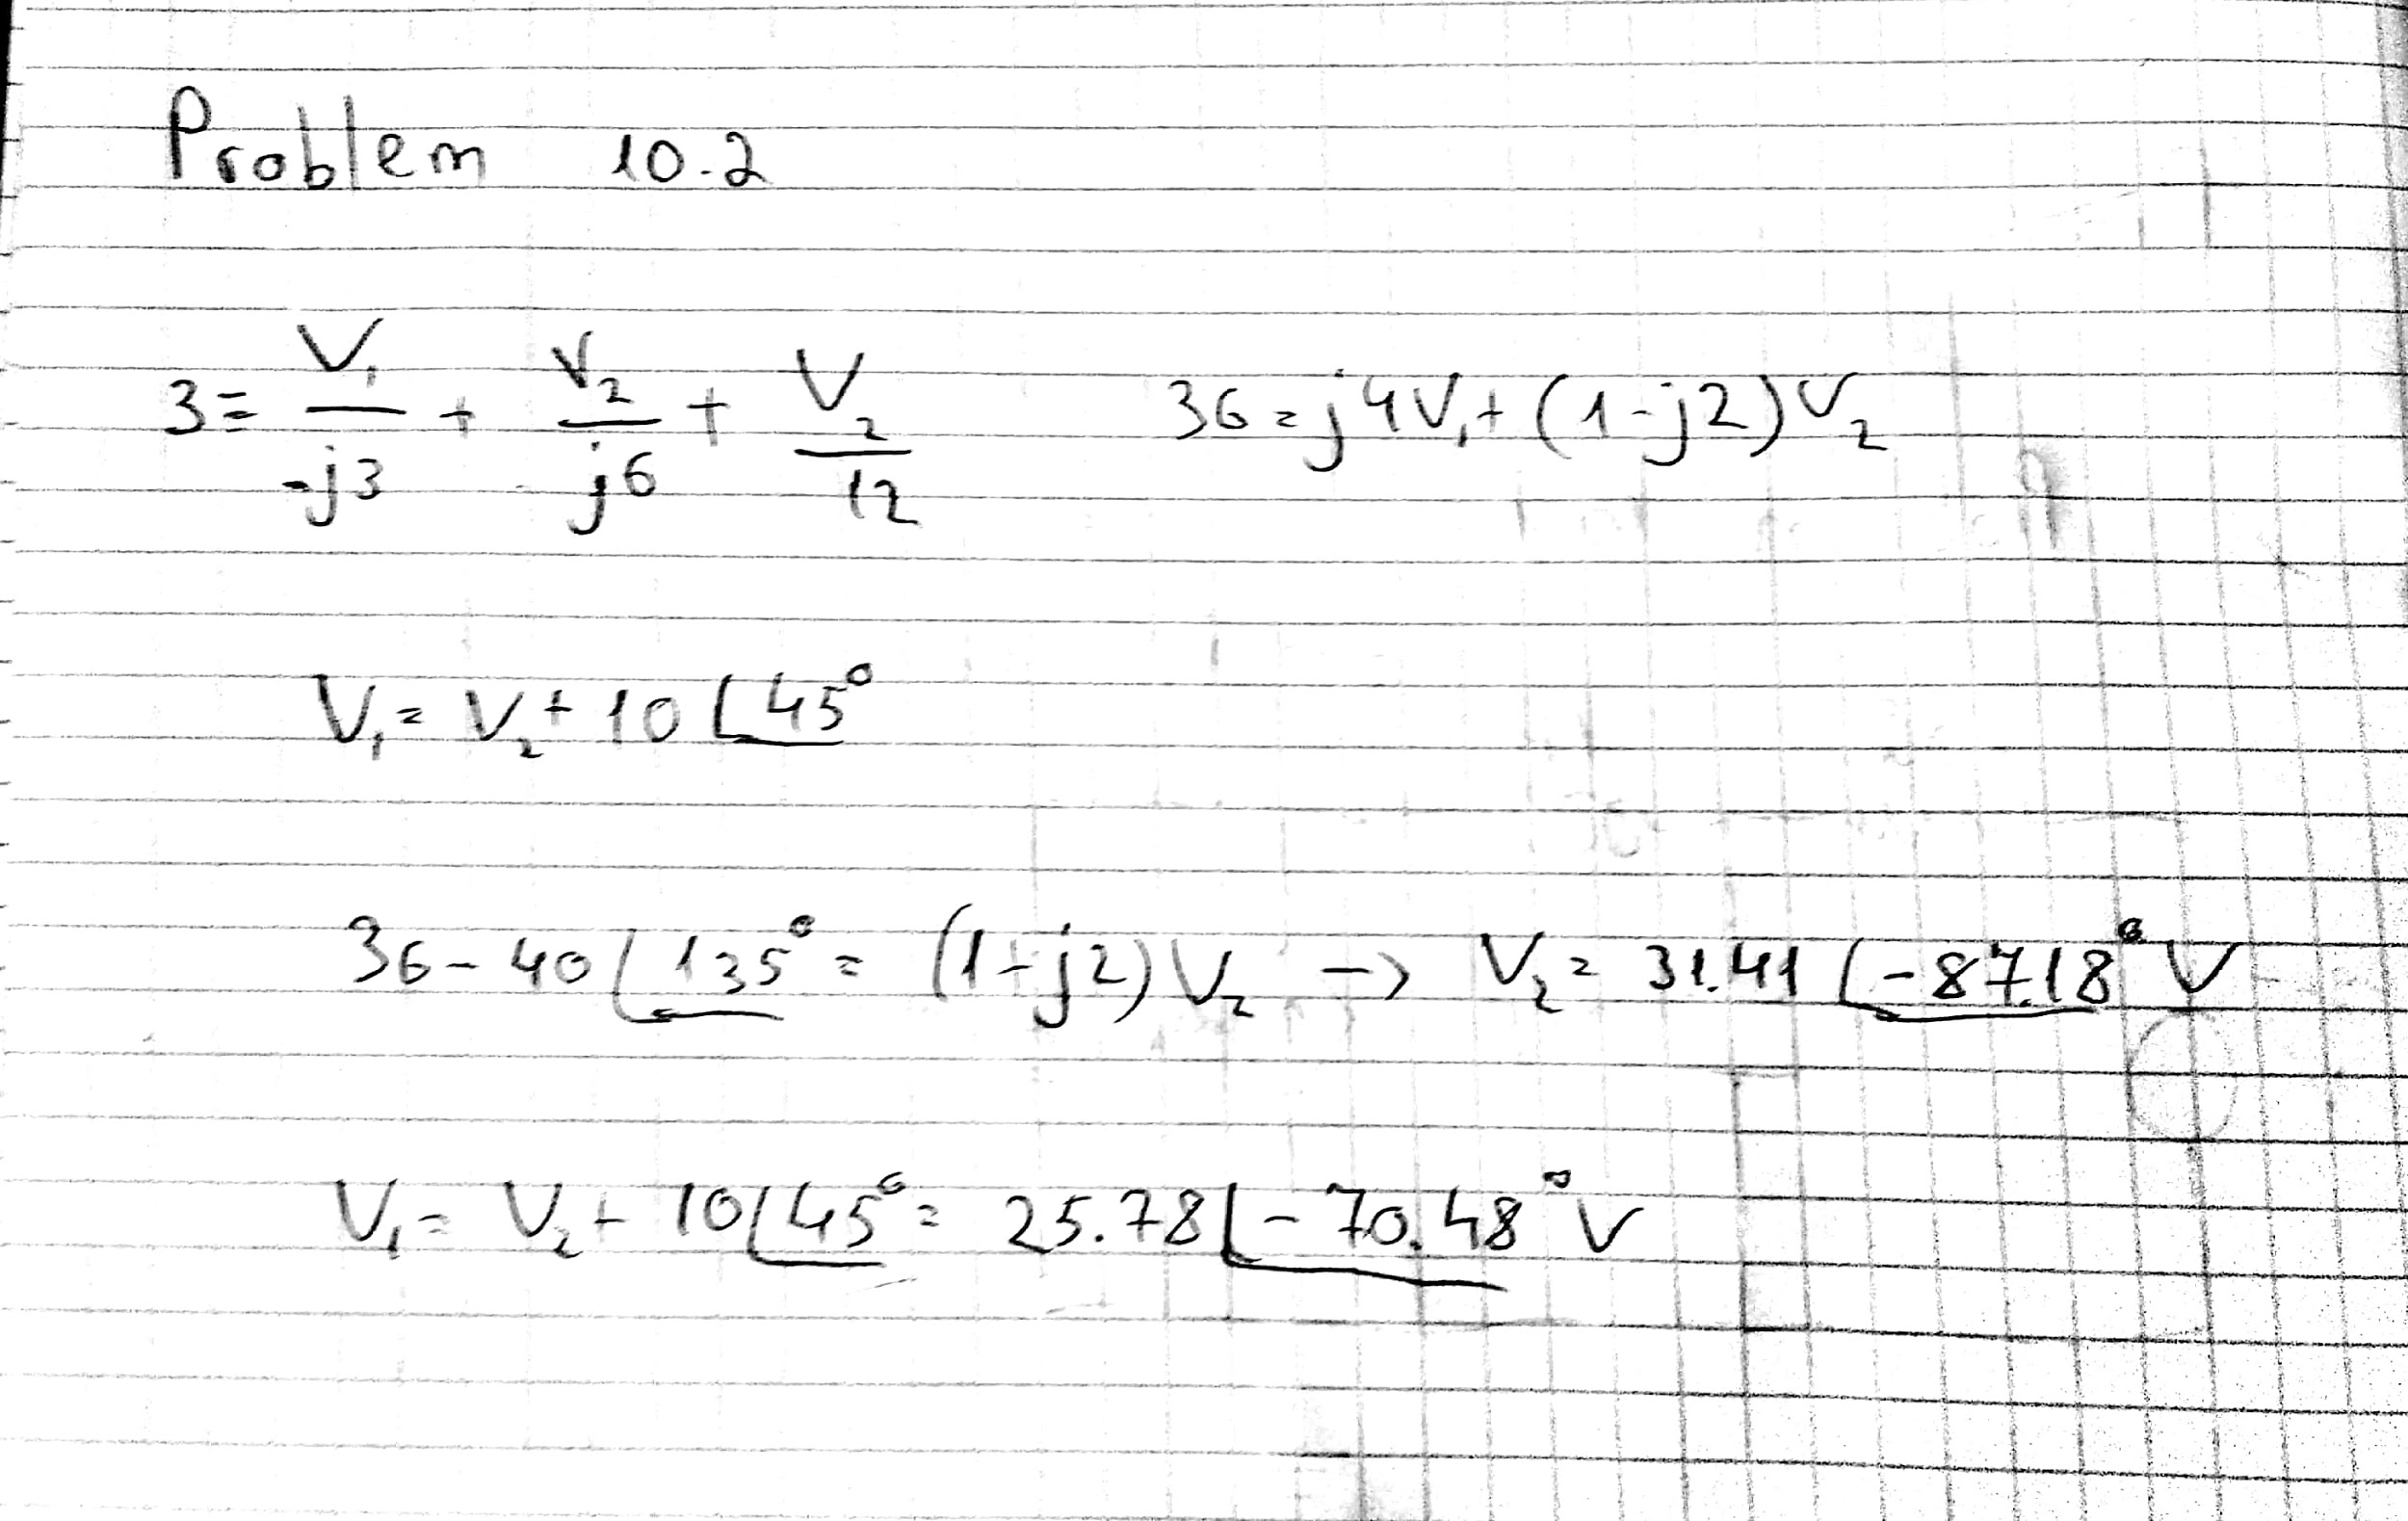 Problem 10.2
3 = V₁/-j3 + V₂/j6 + V₂/12    36 = j4V₁ + (1-j2)V₂
V₁ = V₂ + 10∠45°
36 - 40∠135° = (1-j2)V₂ → V₂ = 31.41∠-87.18° V
V₁ = V₂ + 10∠45° = 25.78∠-70.48° V